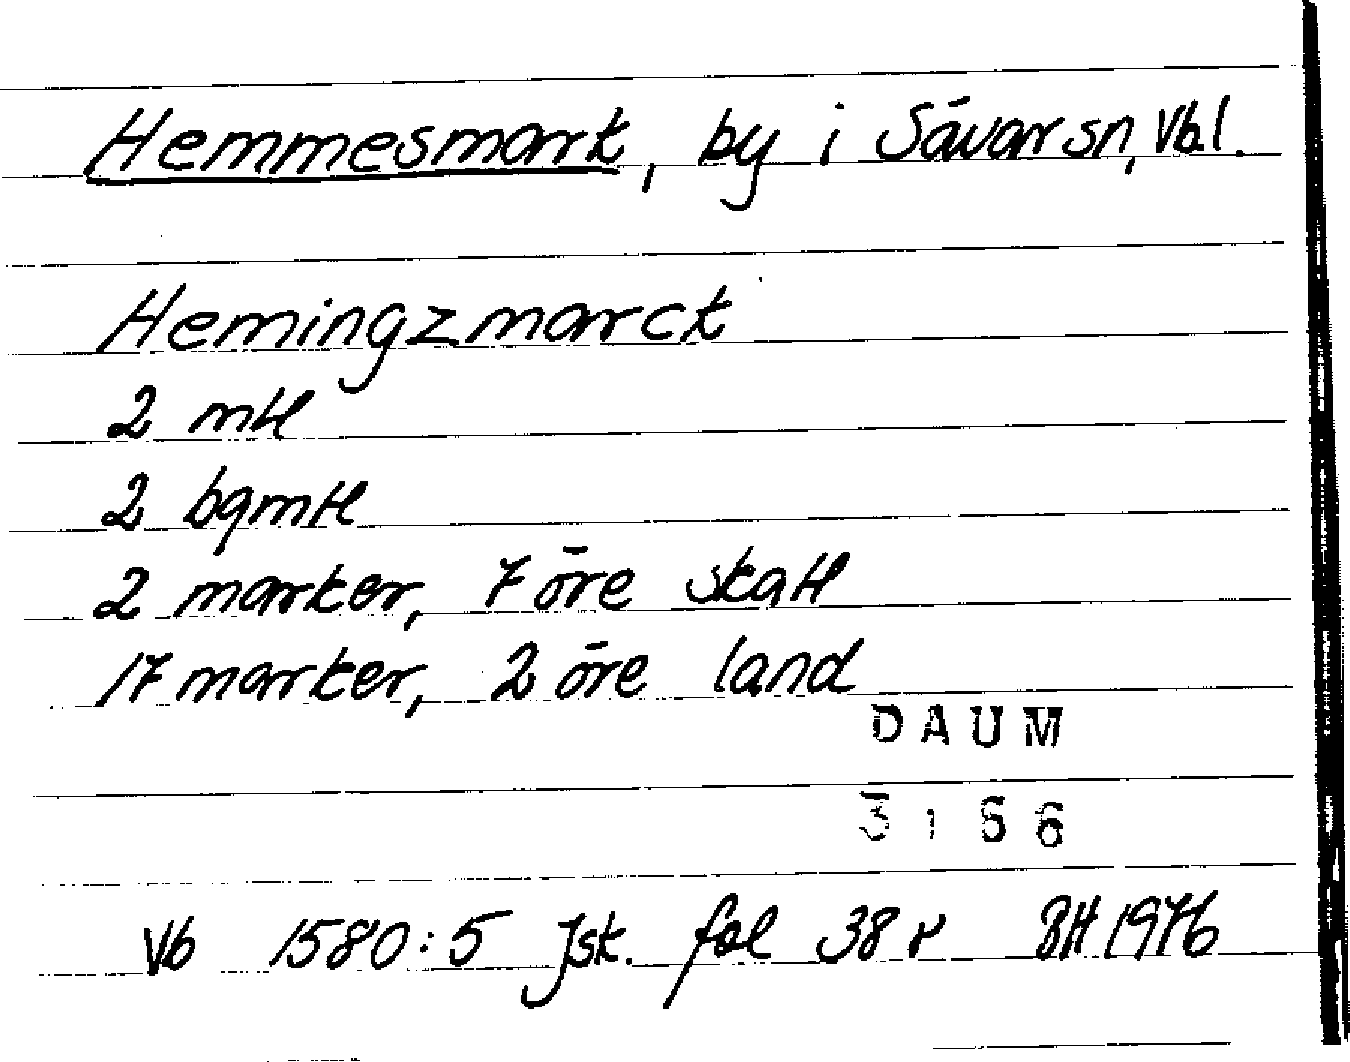 Hemmesmark, by i Sävar sn, Vbl.
Hemingzmarck
2 mtl
2 bgmtl
2 marker, 7 öre skatt
17 marker, 2 öre land
DAUM
Vb 1580:5 Jsk. fol 38 r BH 1976